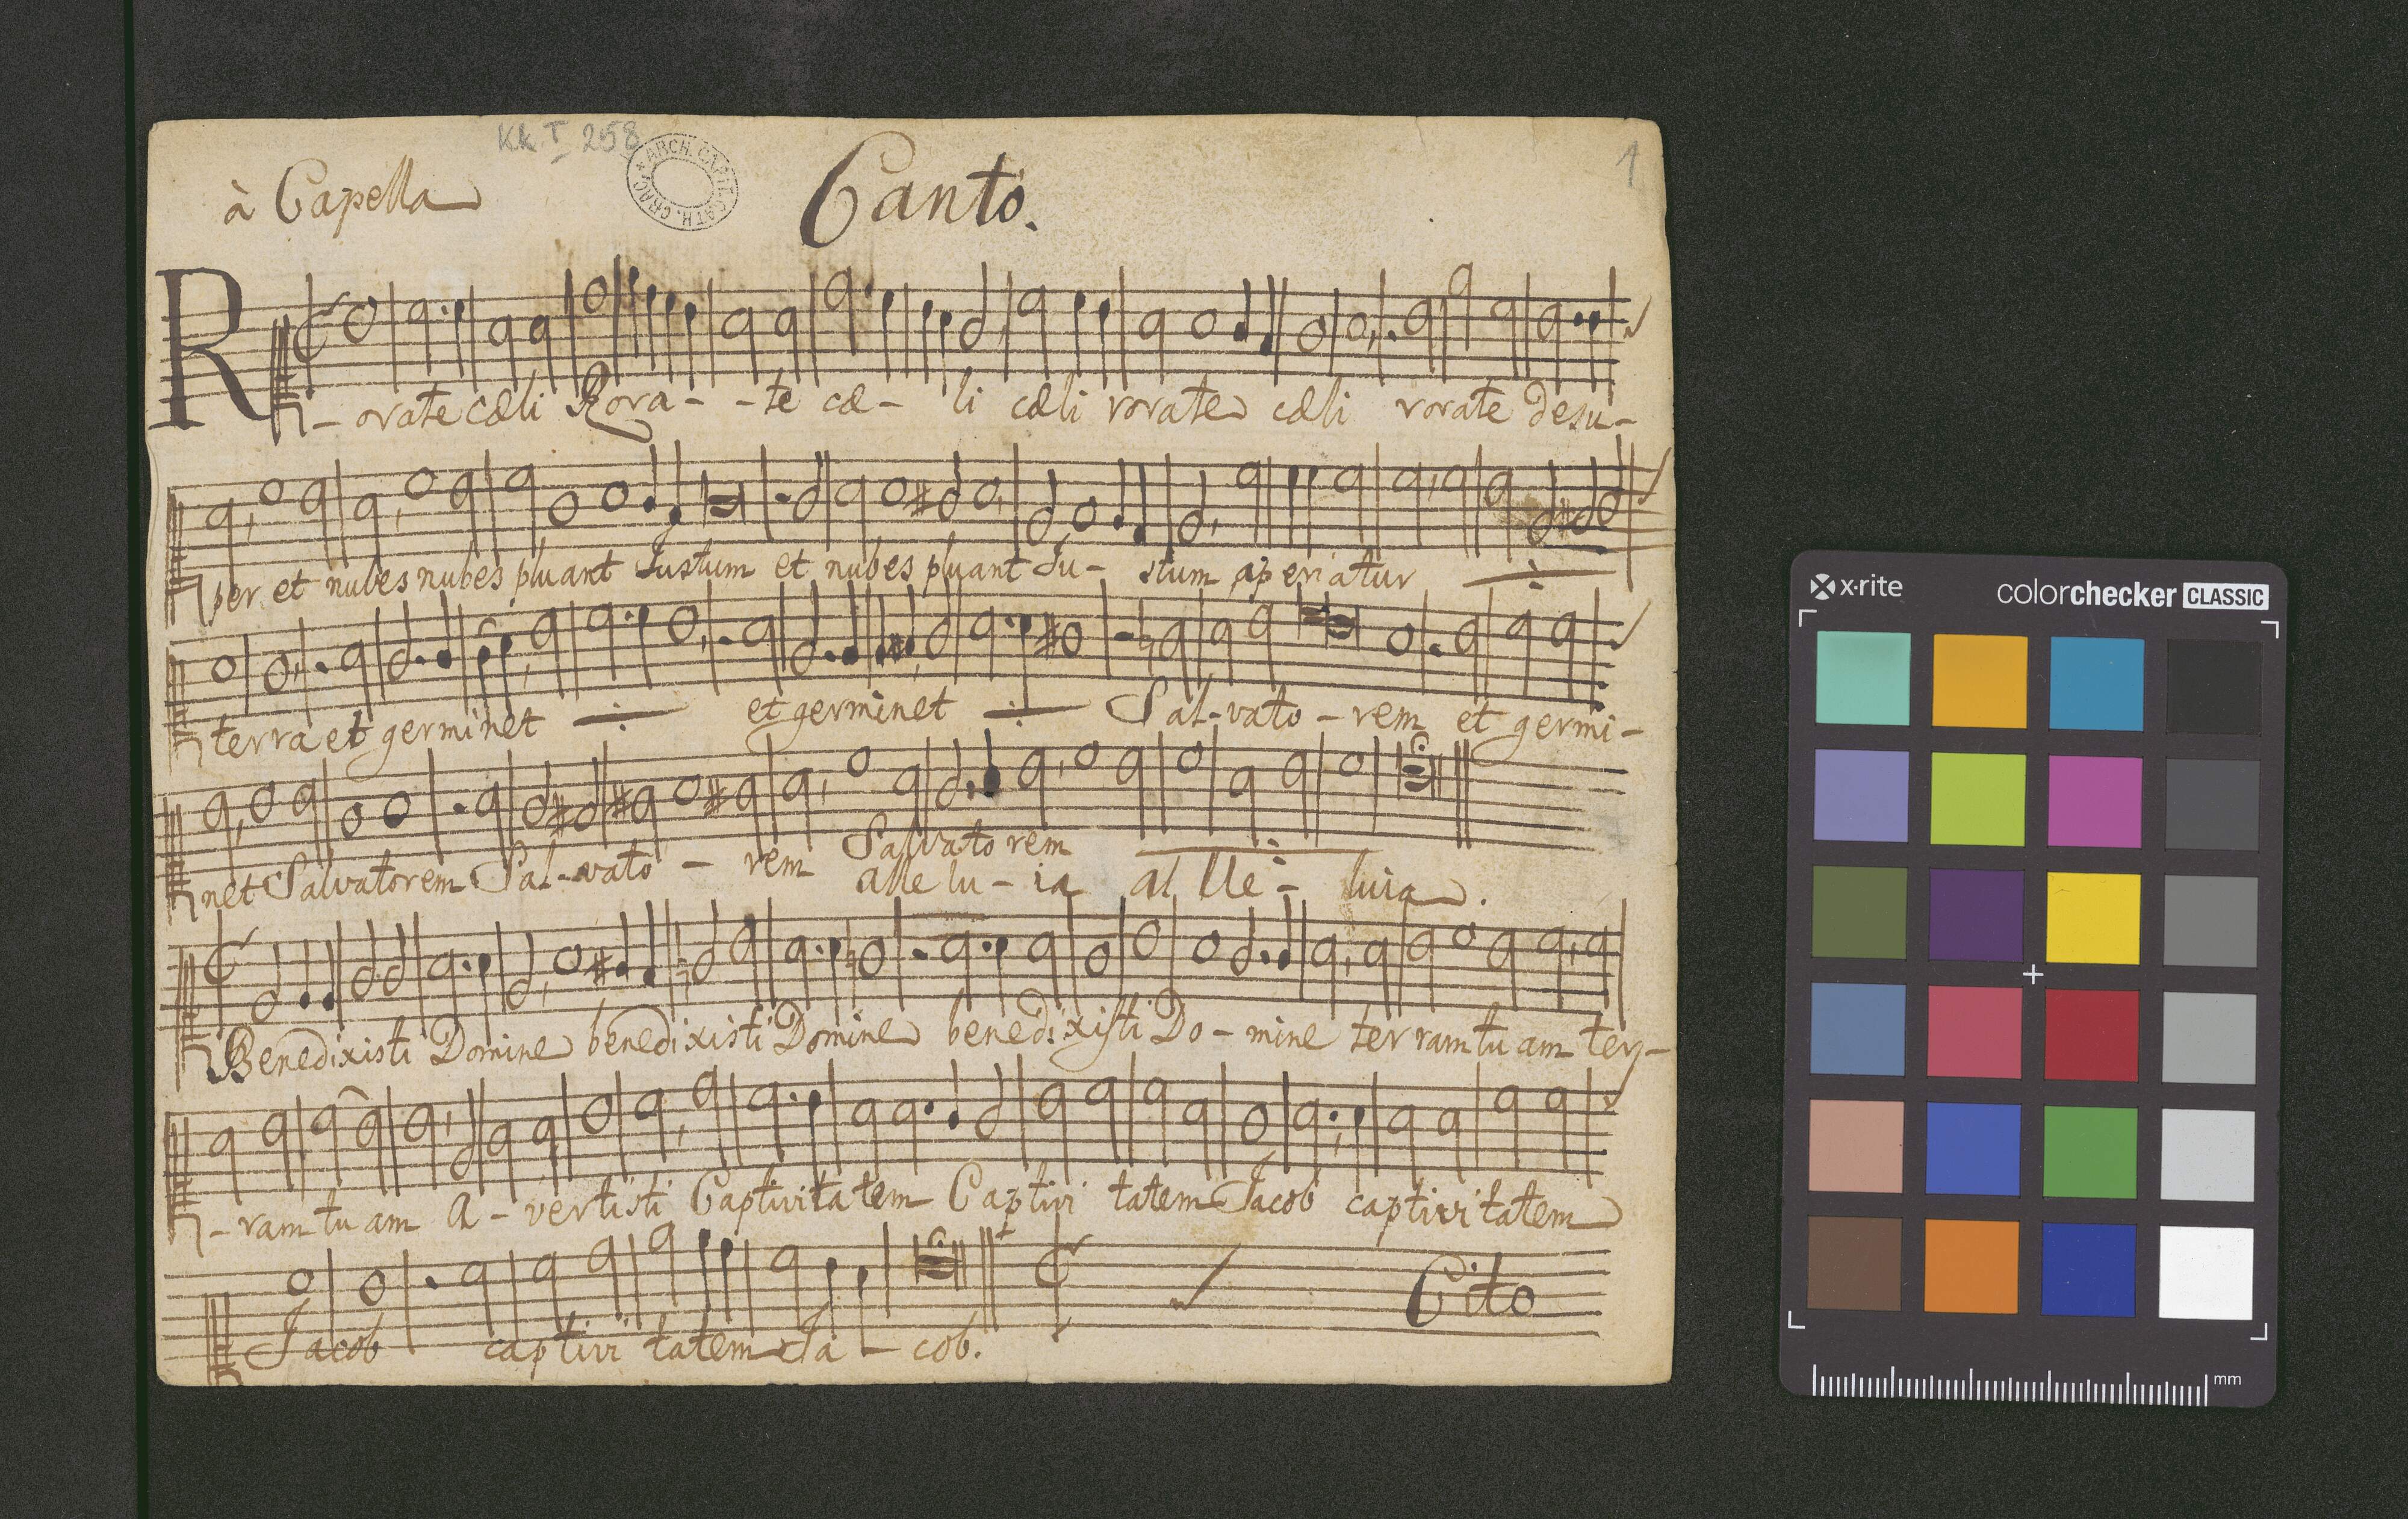 Kk I 258
ARCH. CAPIT. CATH. CRAC.
1
à Capella
Canto.
R-orate cæli Rora--te cæ-li cæli rorate cæli rorate desu-
per et nubes nubes pluant Iustum et nubes pluant Iu-stum aperiatur
terra et germinet et germinet Sal-vato-rem et germi-
net Salvatorem Sal-vato-rem Salvatorem
allelu-ia al lle-luia.
Benedixisti Domine benedixisti Domine benedixisti Do-mine terram tuam ter-
-ram tuam A-vertisti Captivitatem Captivi tatem Iacob captivitatem
Cito
Iacob captivi tatem Ia-cob.
x-rite
colorchecker CLASSIC
mm